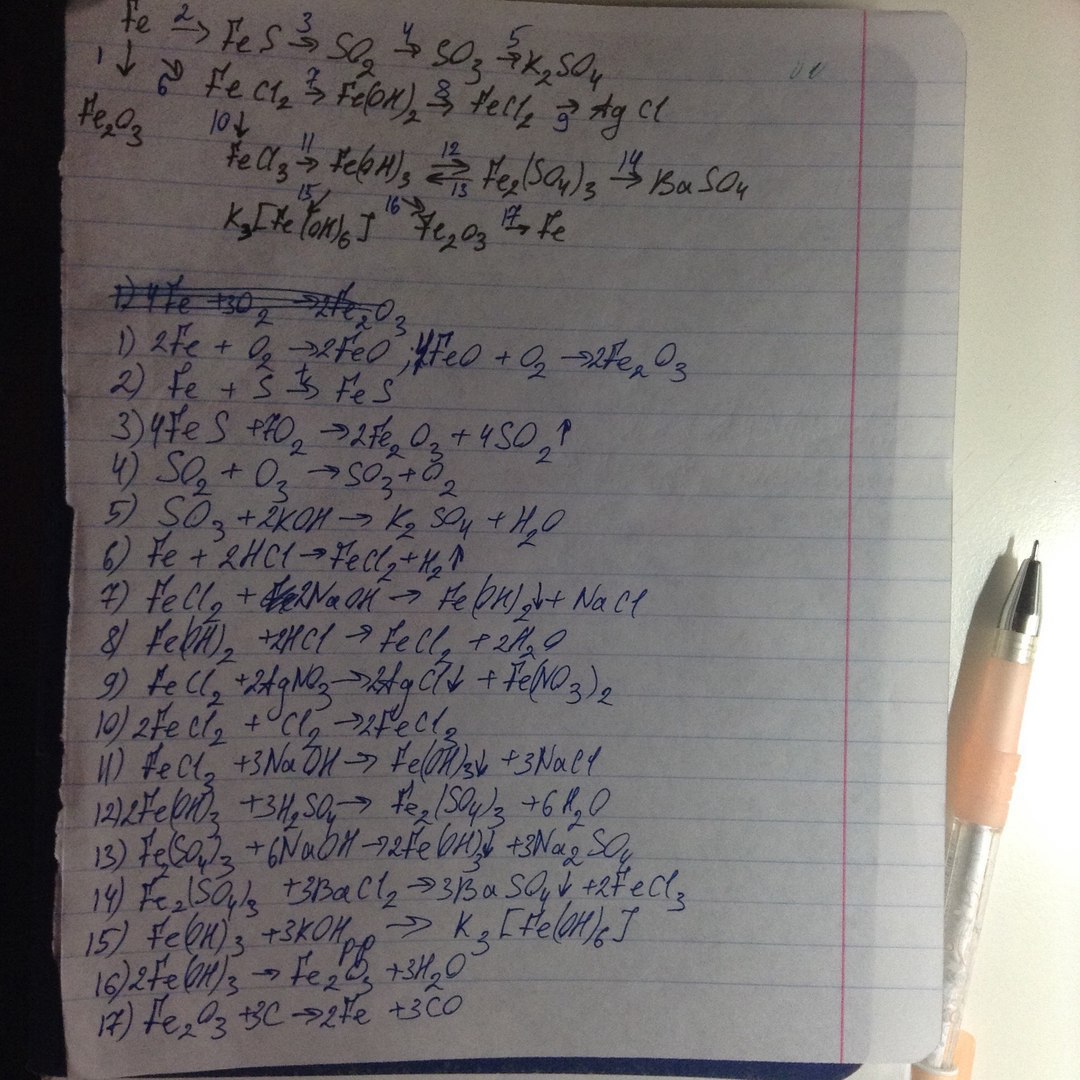 Fe 2→ FeS 3→ SO2 4→ SO3 5→ K2SO4
1↓ 6↘ FeCl2 7→ Fe(OH)2 8→ FeCl2 →9 AgCl
Fe2O3 10↓
FeCl3 11→ Fe(OH)3 12⇄13 Fe2(SO4)3 14→ BaSO4
15↙ 16↘
K3[Fe(OH)6] Fe2O3 17→ Fe
1) 4Fe + 3O2 → 2Fe2O3
1) 2Fe + O2 → 2FeO; 4FeO + O2 → 2Fe2O3
2) Fe + S t→ FeS
3) 4FeS + 7O2 → 2Fe2O3 + 4SO2↑
4) SO2 + O3 → SO3 + O2
5) SO3 + 2KOH → K2SO4 + H2O
6) Fe + 2HCl → FeCl2 + H2↑
7) FeCl2 + 2NaOH → Fe(OH)2↓ + NaCl
8) Fe(OH)2 + 2HCl → FeCl2 + 2H2O
9) FeCl2 + 2AgNO3 → 2AgCl↓ + Fe(NO3)2
10) 2FeCl2 + Cl2 → 2FeCl2
11) FeCl3 + 3NaOH → Fe(OH)3↓ + 3NaCl
12) 2Fe(OH)3 + 3H2SO4 → Fe2(SO4)3 + 6H2O
13) Fe2(SO4)3 + 6NaOH → 2Fe(OH)3↓ + 3Na2SO4
14) Fe2(SO4)3 + 3BaCl2 → 3BaSO4↓ + 2FeCl3
15) Fe(OH)3 + 3KOH рр → K3[Fe(OH)6]
16) 2Fe(OH)3 → Fe2O3 + 3H2O
17) Fe2O3 + 3C → 2Fe + 3CO